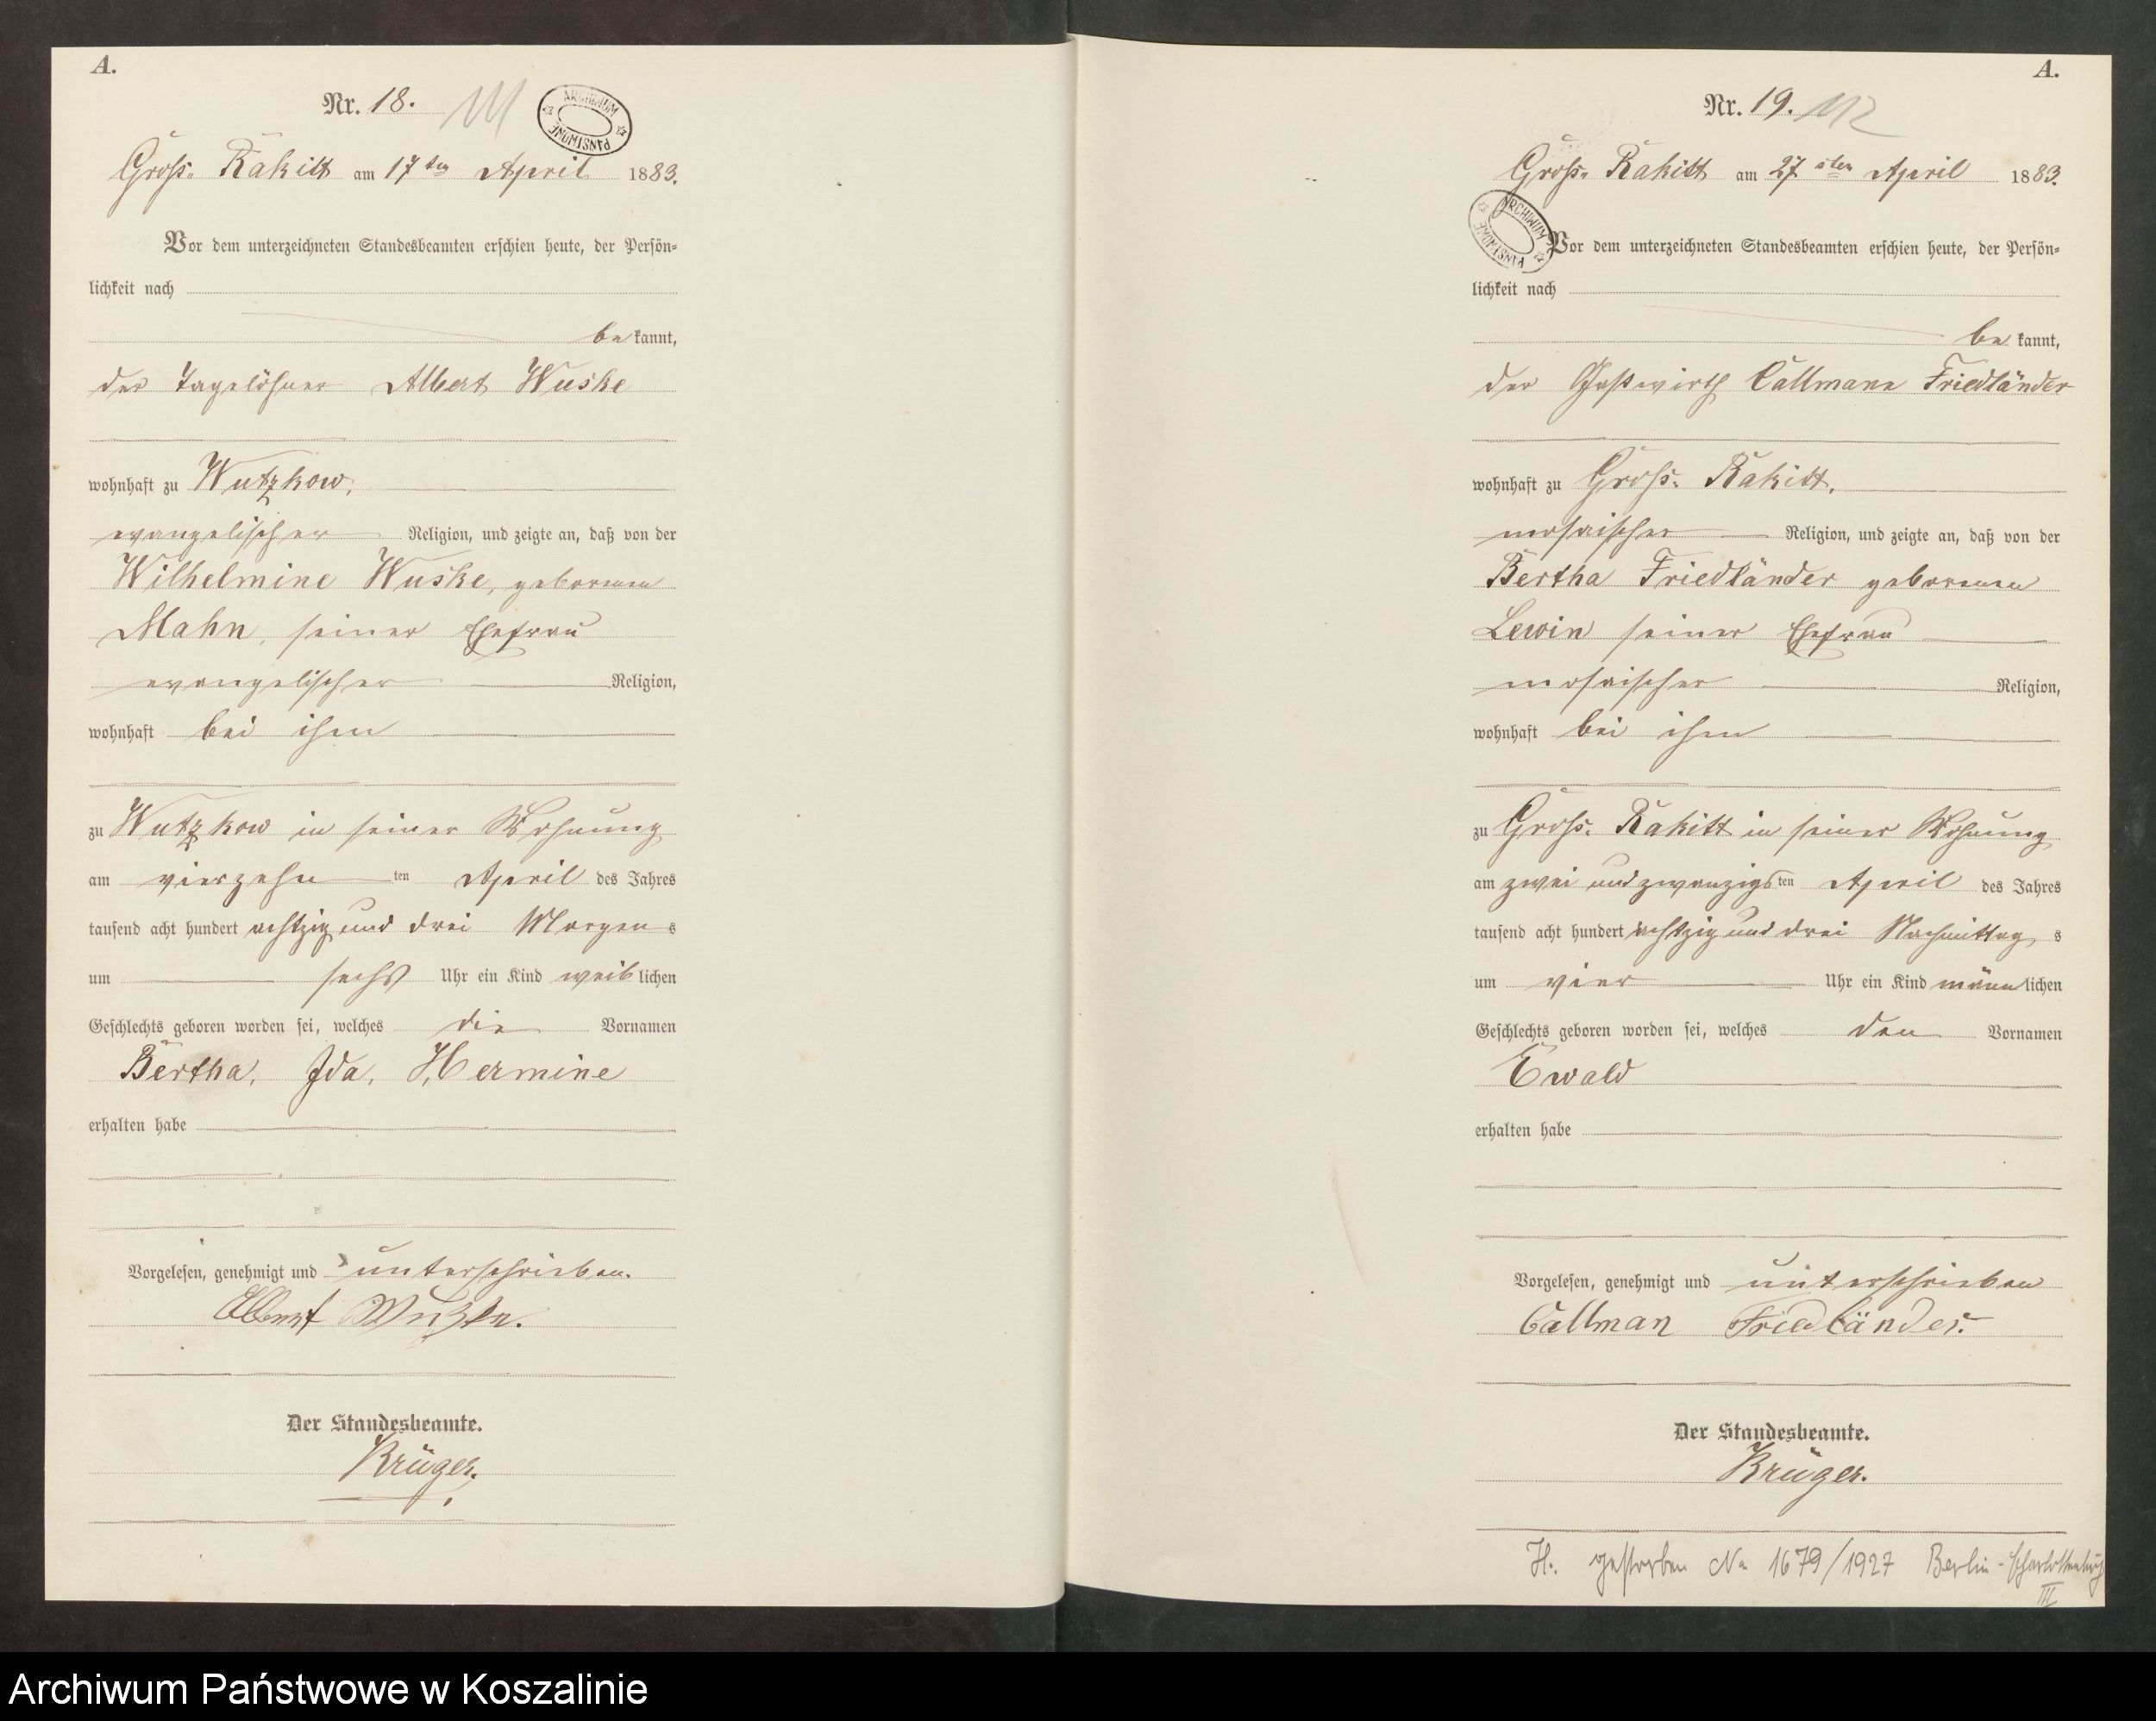 A.
Nr. 18. 111
ARCHIWUM PAŃSTWOWE
Gross-Rakitt am 17ten April 1883.
Vor dem unterzeichneten Standesbeamten erschien heute, der Persön-
lichkeit nach
bekannt,
der Tagelöhner Albert Wuske
wohnhaft zu Wutzkow,
evangelischer Religion, und zeigte an, daß von der
Wilhelmine Wuske, geborenen
Mahn, seiner Ehefrau
evangelischer Religion,
wohnhaft bei ihm
zu Wutzkow in seiner Wohnung
am vierzehnten April des Jahres
tausend acht hundert achtzig und drei Morgens
um sechs Uhr ein Kind weiblichen
Geschlechts geboren worden sei, welches die Vornamen
Bertha, Ida, Hermine
erhalten habe
Vorgelesen, genehmigt und unterschrieben.
Albert Wuske.
Der Standesbeamte.
Krüger.
A.
Nr. 19. 112
Gross-Rakitt am 27sten April 1883.
ARCHIWUM PAŃSTWOWE
Vor dem unterzeichneten Standesbeamten erschien heute, der Persön-
lichkeit nach
bekannt,
der Gastwirth Callmann Friedländer
wohnhaft zu Gross-Rakitt,
mosaischer Religion, und zeigte an, daß von der
Bertha Friedländer geborenen
Lewin seiner Ehefrau
mosaischer Religion,
wohnhaft bei ihm
zu Gross-Rakitt in seiner Wohnung
am zwei und zwanzigsten April des Jahres
tausend acht hundert achtzig und drei Nachmittags
um vier Uhr ein Kind männlichen
Geschlechts geboren worden sei, welches den Vornamen
Ewald
erhalten habe
Vorgelesen, genehmigt und unterschrieben
Callman Friedländer.
Der Standesbeamte.
Krüger.
H. gestorben No 1679/1927 Berlin-Charlottenburg
III
Archiwum Państwowe w Koszalinie